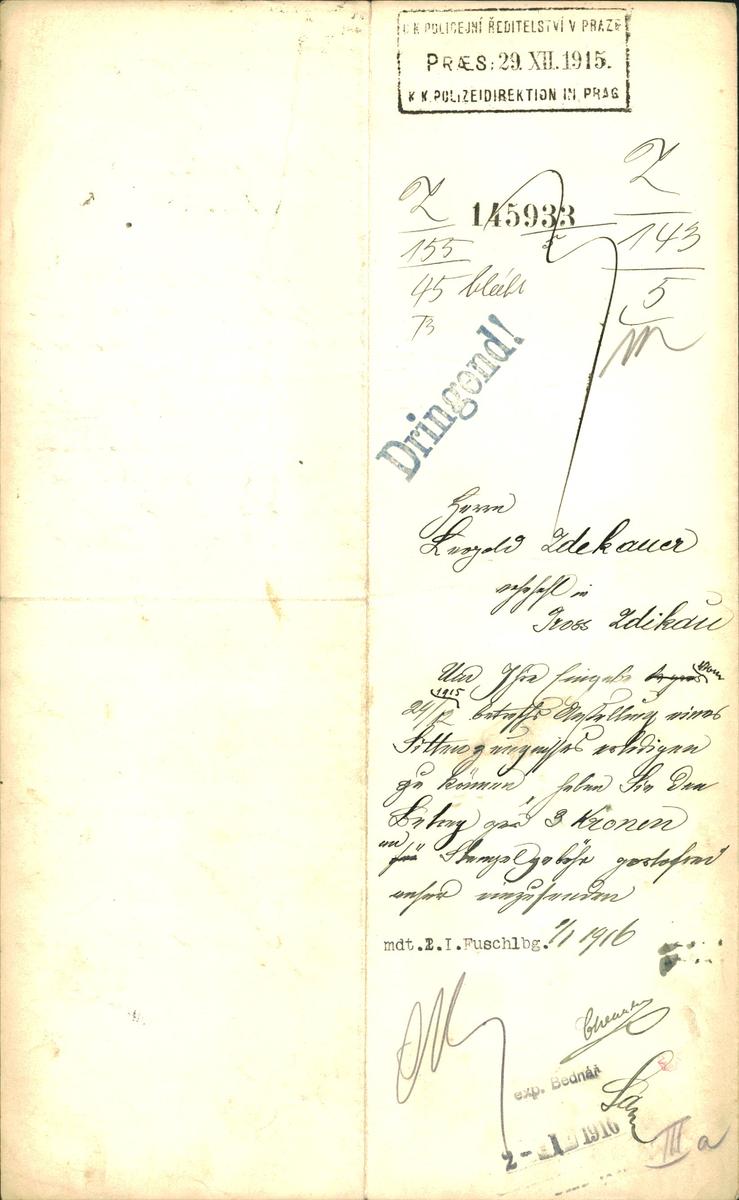 K.K. POLICEJNÍ ŘEDITELSTVÍ V PRAZE
PRÆS: 29. XII. 1915.
K.K. POLIZEIDIREKTION IN PRAG
Z
155
45
Z
143
5
145933
Dringend!
Herrn
Leopold Zdekauer
in
Gross Zdikau
Um Ihre Eingabe vom
24/12 1915 betreffs Ausstellung eines
Sittenzeugnisses erledigen
zu können, haben Sie den
Betrag per 3 Kronen
an Stempelgebühr portofrei
anher einzusenden
mdt.I.I.Fuschlbg. 1/1 1916
exp. Bednář
2 - I 1916
III a